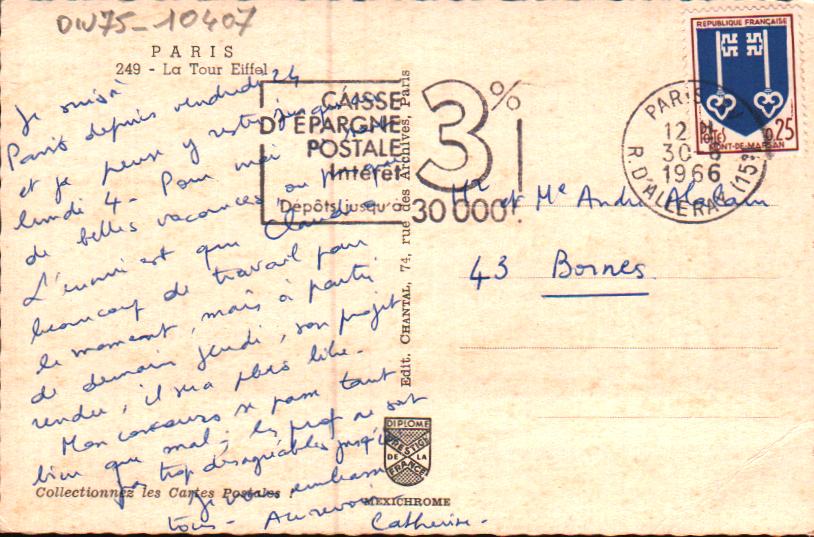 DIV75-10407
PARIS
249 - La Tour Eiffel
Je suis à
Paris depuis vendredi 24
et je pense y rester jusqu'à
lundi 4 - Pour moi
de belles vacances ou presque
L'ennui est que Claude a
beaucoup de travail pour
le moment, mais à partir
de demain jeudi, son projet
rendu, il sera plus libre -
Mon concours se passe tant
bien que mal ; les prof ne sont
pas trop désagréables jusqu'ici
Je vous embrasse
tous - Au revoir -
Catherine -
Collectionnez les Cartes Postales !
Edit. CHANTAL, 74, rue des Archives, Paris
DIPLOME
PRESTIGE
DE LA
FRANCE
MEXICHROME
CAISSE
D'ÉPARGNE
POSTALE
Intérêt
Dépôts jusqu'à
3%
30 000F.
PARIS
12 H
30-
1966
R. D'ALLERAY (15e)
REPUBLIQUE FRANÇAISE
POSTES
0,25
MONT-DE-MARSAN
Mr et Me André
43 Bornes